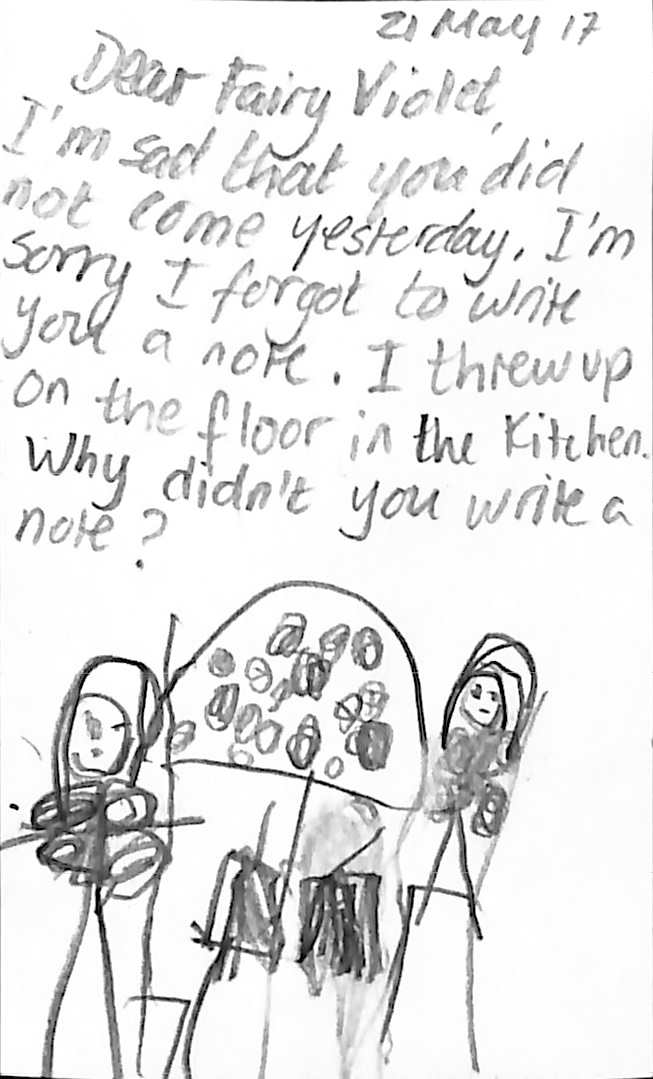 21 May 17
Dear Fairy Violet,
I'm sad that you did
not come yesterday. I'm
sorry I forgot to write
you a note. I threw up
on the floor in the Kitchen.
Why didn't you write a
note?